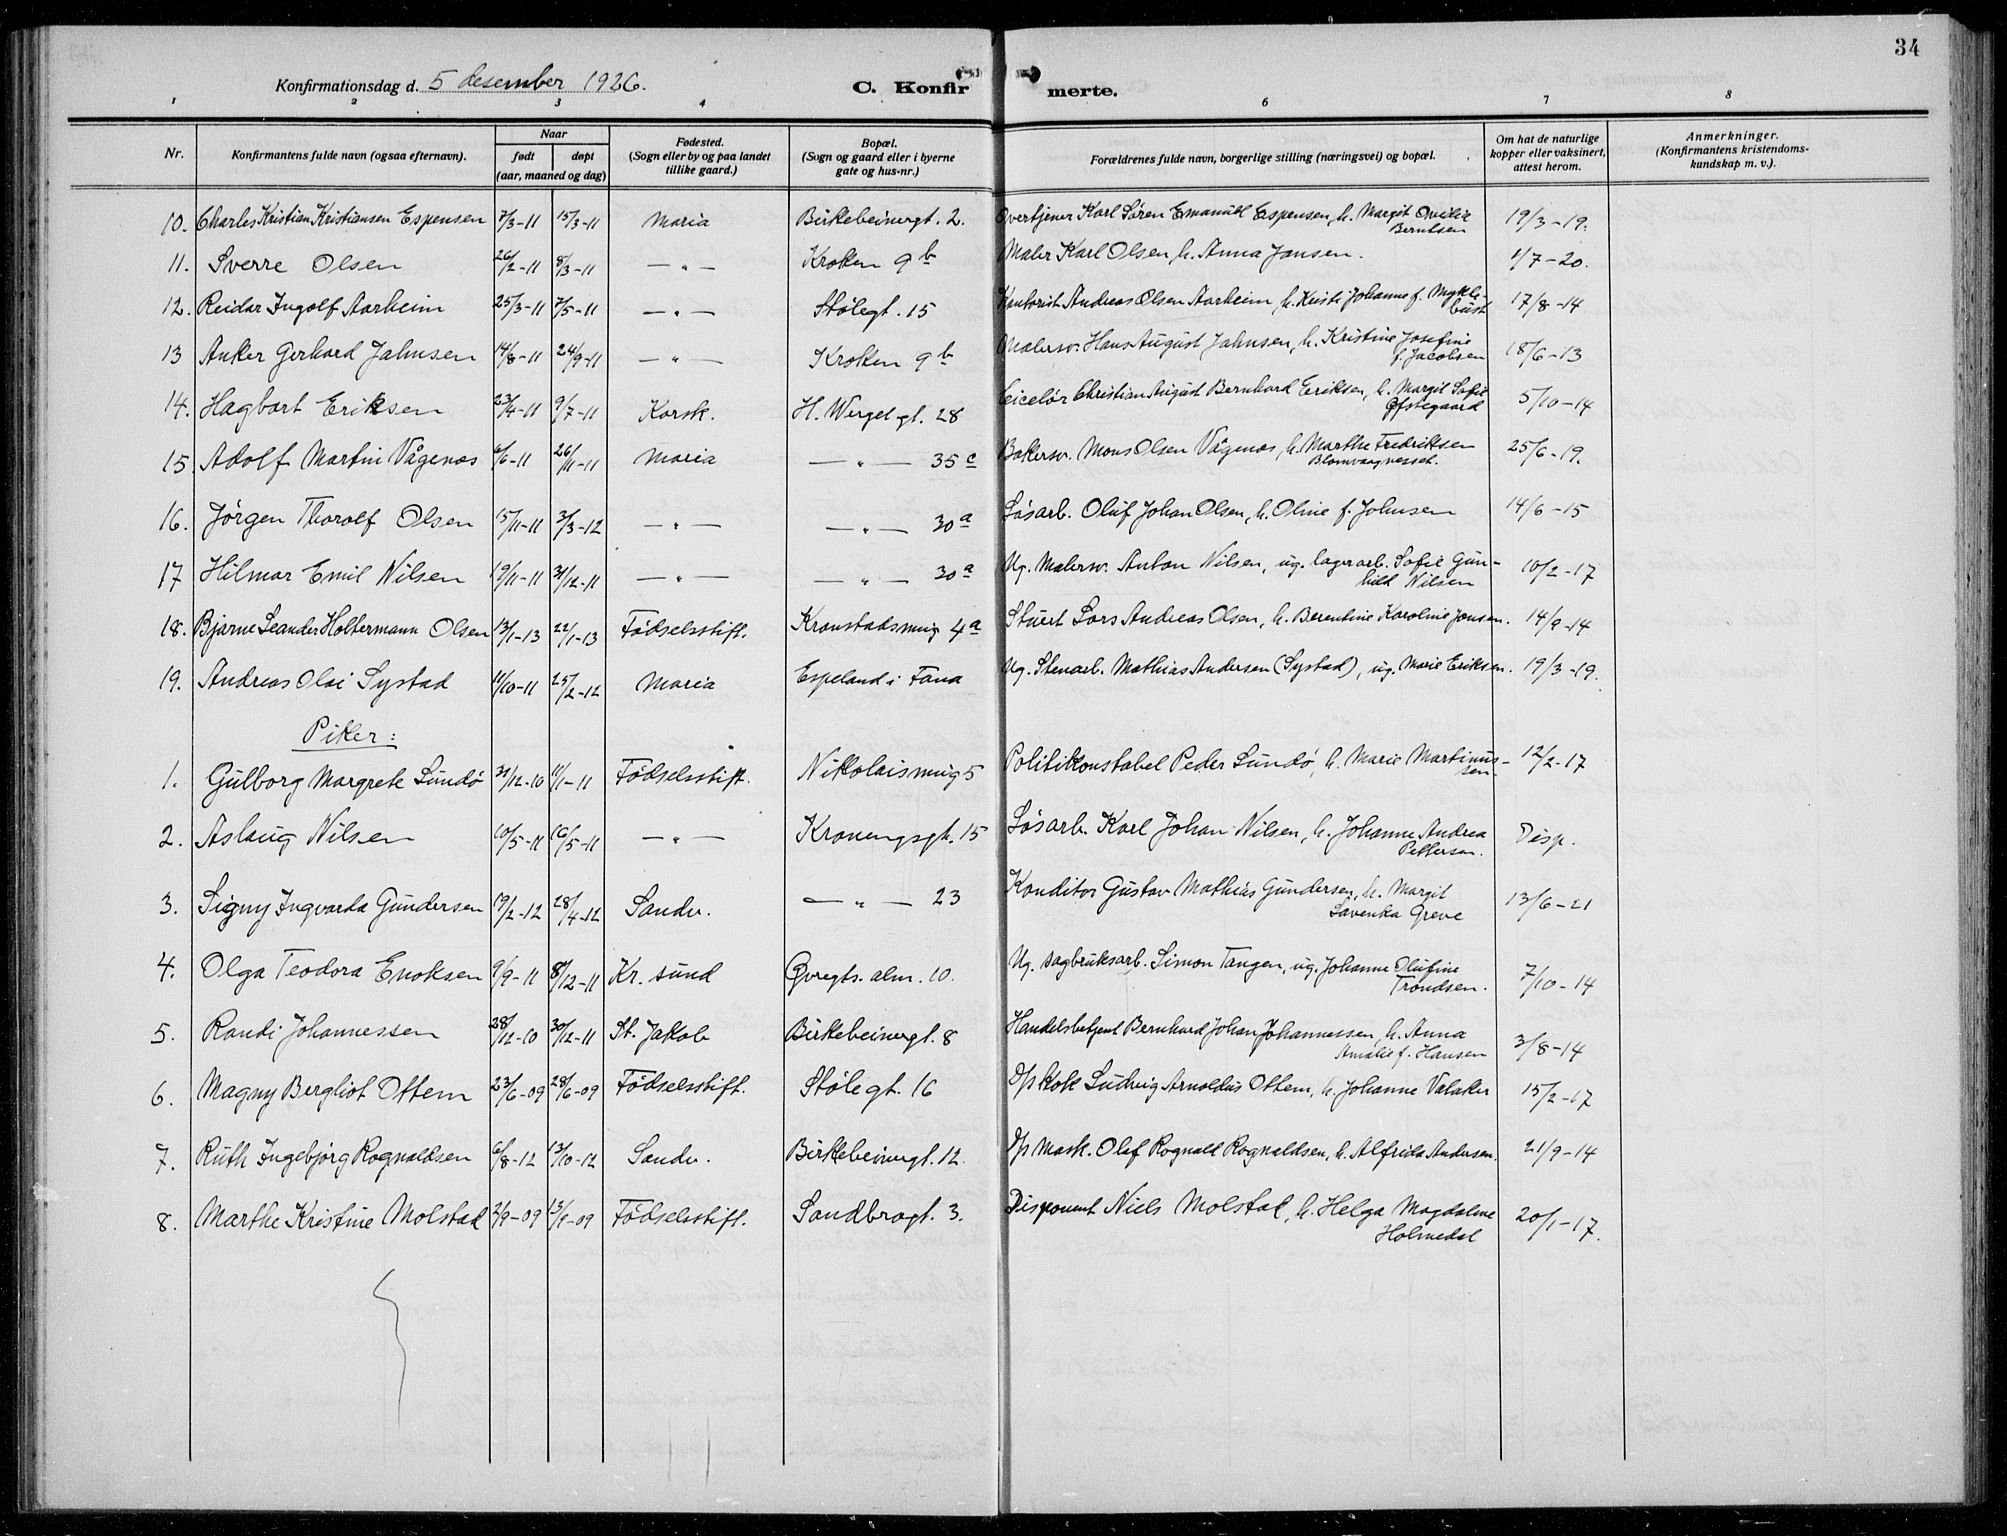 34
Konfirmationsdag d. 5 desember 1926. C. Konfirmerte.
1 2 3 4 6 7 8
Nr. Konfirmantens fulde navn (ogsaa efternavn). Naar født døpt (aar, maaned og dag) Fødested. (Sogn eller by og paa landet tillike gaard.) Bopæl. (Sogn og gaard eller i byerne gate og hus-nr.) Forældrenes fulde navn, borgerlige stilling (næringsvei) og bopæl. Om hat de naturlige kopper eller vaksinert, attest herom. Anmerkninger. (Konfirmantens kristendomskundskap m. v.).
10. Charles Kristian Kristiansen Espensen 7/3-11 15/3-11 Maria Birkebeinergt. 2. Overtjener Karl Søren Emanuel Espensen, h. Margit Ovidia Berntsen 19/3-19.
11. Sverre Olsen 26/2-11 8/3-11 —"— Kroken 9b Maler Karl Olsen, h. Anna Jansen. 1/7-20.
12. Reidar Ingolf Aarheim 25/3-11 7/5-11 —"— Stølegt. 15 Kontorist Andreas Olsen Aarheim, h. Kristi Johanne f. Myklebust 17/8-14
13 Anker Gerhard Jahnsen 14/8-11 24/9-11 —"— Kroken 9b Malersv. Hans August Jahnsen, h. Kristine Josefine f. Jacobsen 18/6-13
14. Hagbart Eriksen 23/4-11 9/7-11 Korsk. H. Wergel.gt. 28 Ciselør Christian August Bernhard Eriksen, h. Margit Sofie Øfstegaard 5/10-14
15. Adolf Martin Vågenes 6/6-11 26/11-11 Maria —"— 35c Bakersv. Mons Olsen Vågenes, h. Marthe Fredriksen Blomvaagnesset. 25/6-19.
16. Jörgen Thorolf Olsen 15/11-11 3/3-12 —"— —"— 30a Løsarb. Oluf Johan Olsen, h. Oline f. Johnsen 14/6-15
17 Hilmar Emil Nilsen 19/11-11 31/12-11 —"— —"— 30a Ug. Malersv. Anton Nilsen, ug. lagerarb. Sofie Gunhild Nilsen 10/2-17
18. Bjarne Leander Holtermann Olsen 13/1-13 22/1-13 Fødselsstift. Kronstadsmug 4a Stuert Lars Andreas Olsen, h. Berentine Karoline Jonsen. 14/9-14
19. Andreas Olai Systad 11/10-11 25/2-12 Maria Espeland i Fana Ug. Stenarb. Mathias Andersen (Systad), ug. Marie Eriksen. 19/3-19.
Piker:
1. Gulborg Margrete Sundø 31/12-10 11/1-11 Fødselsstift. Nikolaismug 5 Politikonstabel Peder Sundø, h. Marie Martinussen. 12/2-17
2. Aslaug Nilsen 10/5-11 16/5-11 —"— Kroningsgt. 15 Løsarb. Karl Johan Nilsen, h. Johanne Andrea Pettersen. Disp.
3. Signy Ingvarda Gundersen 19/2-12 28/4-12 Sandv. —"— 23 Konditor Gustav Mathias Gundersen, h. Margit Lavenka Greve 13/6-21
4. Olga Teodora Enoksen 9/9-11 8/12-11 Kr. sund Øvregts. alm. 10. Ug. sagbruksarb. Simon Tangen, ug. Johanne Olufine Trondsen. 7/10-14
5. Randi Johannessen 28/12-10 30/12-11 St. Jakob Birkebeinergt. 8 Handelsbetjent Bernhard Johan Johannessen, h. Anna Amalie f. Hansen 3/8-14
6. Magny Bergliot Ottem 23/6-09 28/6-09 Fødselsstift. Stølegt. 16 D/s Kok Ludvig Arnoldus Ottem, h. Johanne Valaker 15/2-17
7. Ruth Ingebjørg Rognaldsen 6/8-12 13/10-12 Sandv. Birkebeinergt. 12. D/s Mask. Olaf Rognald Rognaldsen, h. Alfrida Andersen. 21/9-14
8. Marthe Kristine Molstad 2/9-09 13/9-09 Fødselsstift. Sandbrogt. 3. Disponent Niels Molstad, h. Helga Magdalene Holmedal 20/1-17.